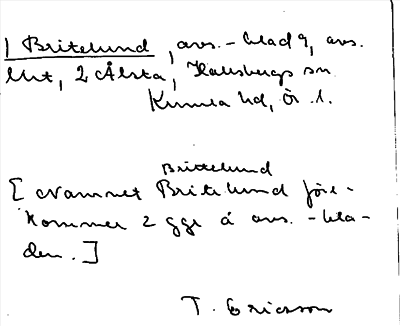 1 Britelund, avs.-blad 9, avs.
litt, 2 Ålsta, Hallsbergs sn
Kumla hd, Ör. l.
Brittelund
[Namnet Britelund före-
kommer 2 ggr å avs.-bla-
den.]
T. Ericsson